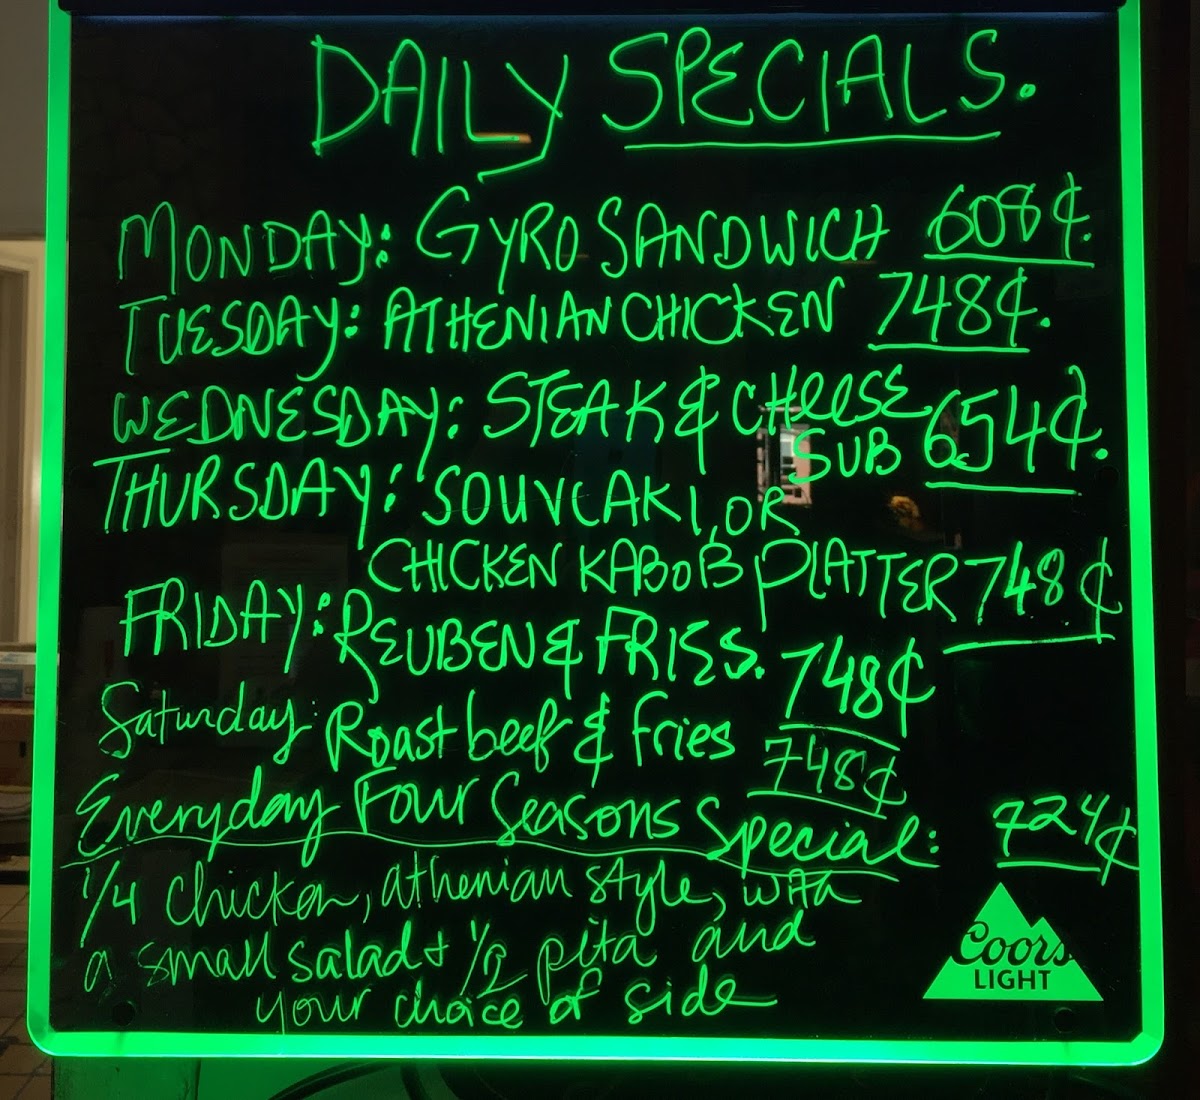 DAILY SPECIALS.
MONDAY: GYRO SANDWICH 608¢.
TUESDAY: ATHENIAN CHICKEN 748¢.
WEDNESDAY: STEAK & CHEESE
SUB 654¢.
THURSDAY: SOUVLAKI, OR
CHICKEN KABOB PLATTER 748¢
FRIDAY: REUBEN & FRIES. 748¢
Saturday: Roast beef & fries 748¢
Everyday Four Seasons Special: 724¢
1/4 chicken, athenian style, with
a small salad + 1/2 pita and
your choice of side
Coors
LIGHT